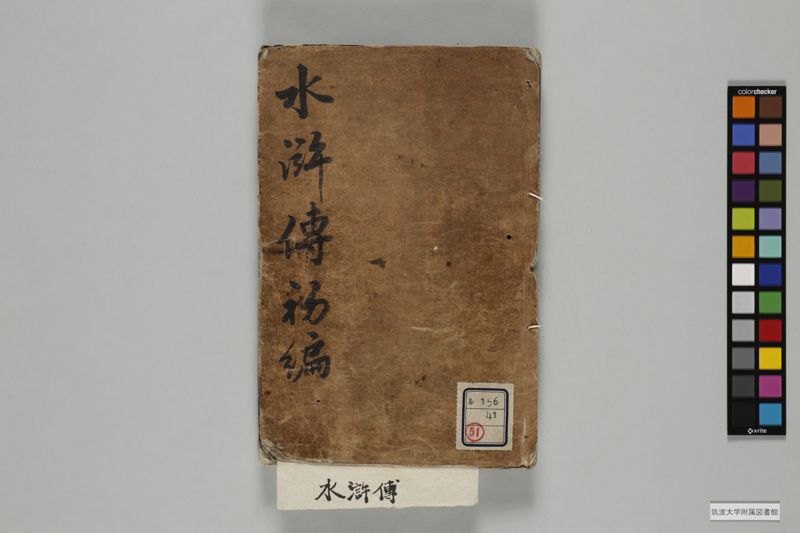 水滸傳初編
ル 156
41
51
水滸傳
colorchecker
x-rite
筑波大学附属図書館